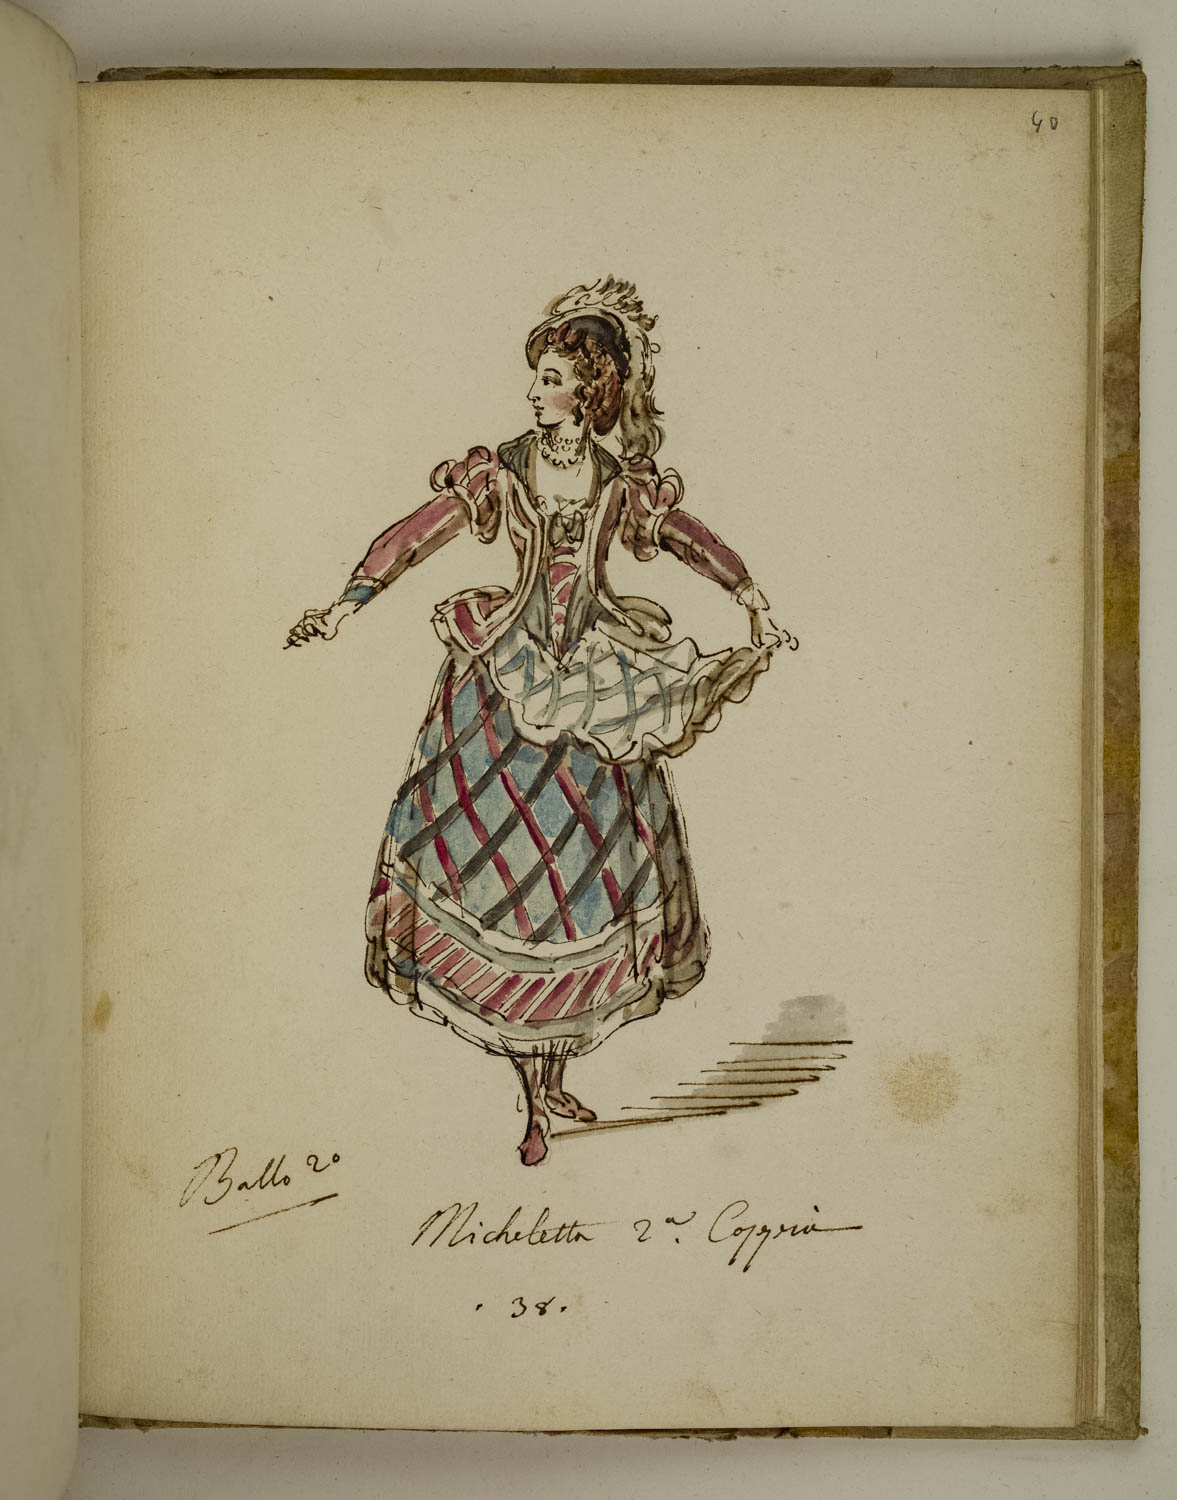 40
Ballo 2º
Micheletta 2ª. Coppia
. 38.